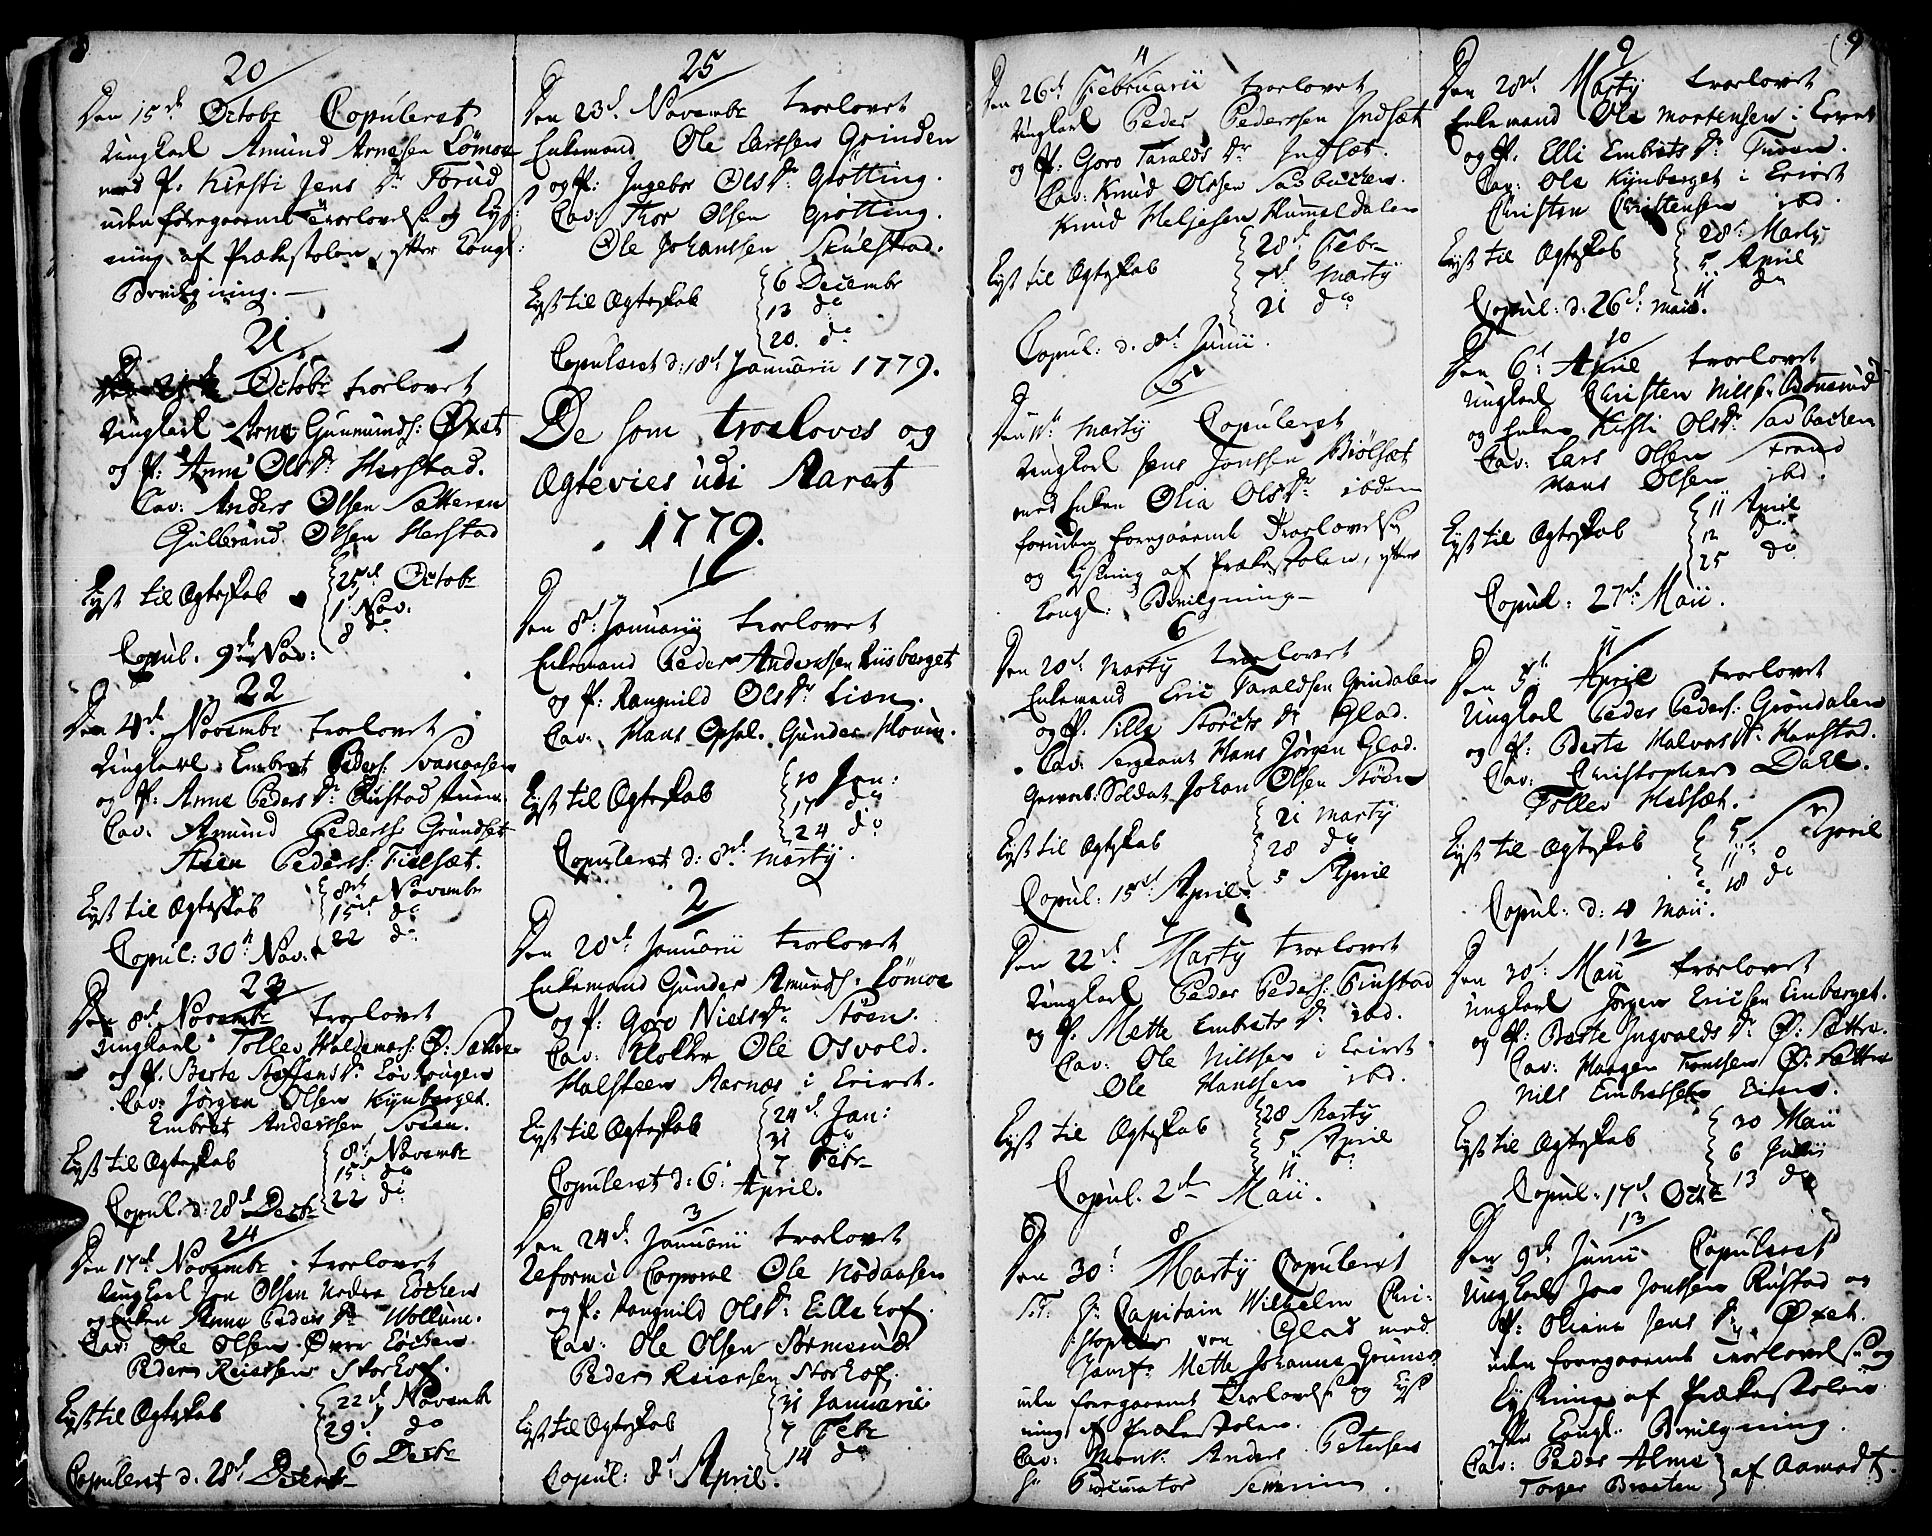 8
20
Den 15de Octobr Copuleret
Ungkarl Amund Arnesen Lömoe
med P. Kirsti Jens Dr Torud
uden foregaaende Troelovelse og Lys-
ning af Prækestolen, efter Kongl:
Bevilgning.
21
Den Octobr troelovet
Ungkarl Arne Gunmunds: Øxet
og P. Anne Ols Dr Herstad.
Cav: Anders Olsen Sætteren
Gulbrand Olsen Herstad
Lyst til Ægteskab
25de Octobr
1 Nov.
8 do
Copul. 9de Nov:
22
Den 4de Novembr troelovet
Ungkarl Embret Peders: Svenaasen
og P. Anne Peders Dr Rustad
Cav: Amund Peders: Grundset
Steen Peders: Fielsæt.
Lyst til Ægteskab
8de Novembr
15de do
22 do
Copul: 30te Nov.
23
Den 8de Novembr troelovet
Ungkarl Tollev Haldemars: Ø: Sættre
og P. Berte Steffens Dr Löv
Cav: Jørgen Olsen Kynberget.
Embret Andersen Sveen.
Lyst til Ægteskab
8de Novembr
15de do
22 do
Copul: d: 28de Decbr
24
Den 17de Novembr troelovet
Ungkarl Jon Olsen Nedre Löcken
og Enken Anne Peders Dr Wollum.
Cav: Ole Olsen Øvre Löcken
Peder Reiersen Storhof.
Lyst til Ægteskab
22de Novembr
29de do
6 Decbr
Copuleret d: 28de Decbr
25
Den 23de Novembr troelovet
Enkemand Ole Larsen Grinden
og P. Ingebor Ols Dr Grötting.
Cav: Thor Olsen Grötting.
Ole Johansen Skulstad.
Lyst til Ægteskab
6 Decembr
13 do
20 do
Copuleret d: 18de Januarii 1779.
De som troeloves og
Ægtevies udi Aaret
1779.
1
Den 8de Januarij troelovet
Enkemand Peder Andersen Riisberget
og P. Rangnild Ols Dr Lien.
Cav: Hans Opsal. Gunder Hovin.
Lyst til Ægteskab
10 Jan:
17 do
24 do
Copuleret d: 8de Martij.
2
Den 20de Januarii troelovet
Enkemand Gunder Amunds: Lömoe
og P: Goro Niels Dr Støen.
Cav: Holke Ole Osvold.
Halsteen Aarnæs i Elvret.
Lyst til Ægteskab
24de Jan:
31 do
7 Febr
Copuleret d: 6te April.
3
Den 24de Januarii troelovet
Reforme Corporal Ole Nödaasen
og P. Rangnild Ols Dr: Ellehof.
Cav: Ole Olsen Sørmsrud
Peder Reiersen Storhof.
Lyst til Ægteskab
31 Januarii
7 Febr
14 do
Copul: 8de April.
4
Den 26de Februarii troelovet
Ungkarl Peder Pedersen Indsæt
og P. Goro Taralds Dr Indsæt.
Cav: Knud Olsen Sorbacken.
Knud Heljesen Hummeldalen
Lyst til Ægteskab
28de Febr
7de Martij
21 do
Copul: d. 8de Junii.
5
Den 11te Martij Copuleret
Ungkarl Jens Jonsen Biölset
med Enken Olia Ols Dr ibidem
foruden foregaaende Troelovelse
og Lysning af Prækestolen, efter
Kongl: Bevilgning
6
Den 20de Martij troelovet
Enkemand Eric Taraldsen Grindalen
og P. Sille Störchs Dr Glad.
Cav: Sergeant Hans Jørgen Glad.
Gevorb: Soldat Johan Olsen Støen
Lyst til Ægteskab
21 Martij
28 do
5 April
Copul: 15de April.
7
Den 22de Martij troelovet
Ungkarl Peder Peders: Finstad
og P. Mette Embrets Dr ibid.
Cav: Ole Nilsen i Elvret
Ole Hansen ibd.
Lyst til Ægteskab
28 Martij
5 April
11 do
Copul. 2de Maii.
8
Den 30te Martij Copuleret
Hr. Capitain Wilhelm Chri-
stopher von Glad med
Jomf: Mette Johanna Gruner
uden foregaaende Troelovelse og Lys-
ning af Prækestolen.
Cav: Monr. Anders Petersen
Hr Procurator
9
(9
Den 28de Martij troelovet
Enkemand Ole Mortensen i Elvret
og P. Elli Embrets Dr
Cav: Ole Kynberget i Elvret
Christen Christensen ibd.
Lyst til Ægteskab
28de Martij
5 April
11 do
Copul: d: 26de Maii.
10
Den 6te April troelovet
Ungkarl Christen Nils: Bonsrud
og Enken Kisti Ols Dr Sorbacken
Cav: Lars Olsen Strand
Hans Olsen ibd.
Lyst til Ægteskab
11 April
12 do
25 do
Copul: 27de Maii.
11
Den 5te April troelovet
Ungkarl Peder Peders: Gröndalen
og P: Berte Halvors Dr Hanstad.
Cav: Christopher Dahl.
Tollev Helset.
Lyst til Ægteskab
5 April
11 do
18 do
Copul: d: 4 Maii.
12
Den 30te Maii troelovet
Ungkarl Jørgen Ericsen Emberget.
og P: Berte Ingvalds Dr Ø: Sættre.
Cav: Haagen Ø: Sættre
Nils Embretsen
Lyst til Ægteskab
30 Maii
6 Junii
13 do
Copul: 17de Octr
13
Den 9de Junii Copuleret
Ungkarl Jon Jonsen Rustad og
P. Oliana Jens Dr Øxet.
uden foregaaende Troelovelse og
Lysning af Prækestolen
efter Kongl: Bevilgning.
Cav: Peder Alme
Torger Braaten
af Aamodt